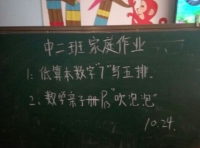 中二班家庭作业
1: 低算本数字"7"写五排.
2、数学亲子册P5"吹泡泡"
10.24.